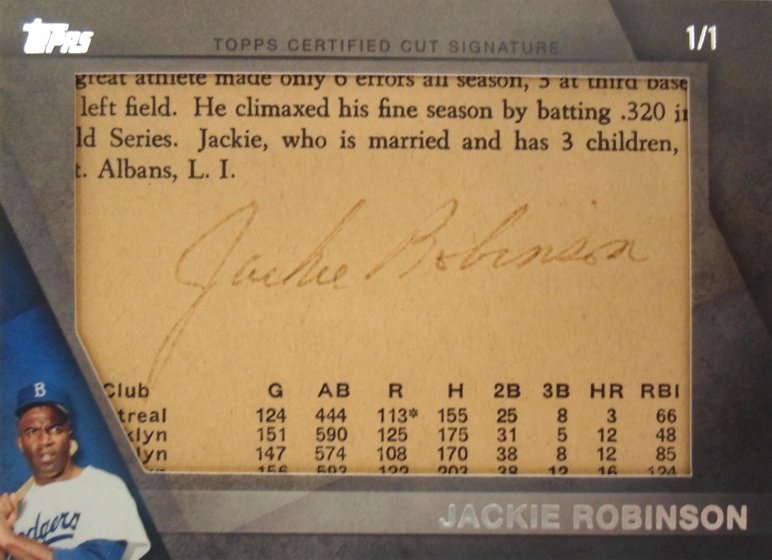 Topps
TOPPS CERTIFIED CUT SIGNATURE
1/1
great athlete made only 6 errors all season, 3 at third base
left field. He climaxed his fine season by batting .320 in
ld Series. Jackie, who is married and has 3 children,
t. Albans, L. I.
Jackie Robinson
Club G AB R H 2B 3B HR RBI
treal 124 444 113* 155 25 8 3 66
klyn 151 590 125 175 31 5 12 48
lyn 147 574 108 170 38 8 12 85
156 593 122 203 38 12 16 124
B
dgers
JACKIE ROBINSON